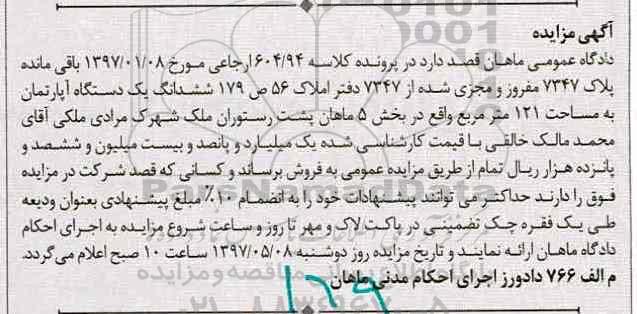 آگهی مزایده
دادگاه عمومی ماهان قصد دارد در پرونده کلاسه ۶۰۴/۹۴ ارجاعی مورخ ۱۳۹۷/۰۱/۰۸ باقی مانده
پلاک ۷۳۴۷ مفروز و مجزی شده از ۷۳۴۷ دفتر املاک ۵۶ ص ۱۷۹ ششدانگ یک دستگاه آپارتمان
به مساحت ۱۲۱ متر مربع واقع در بخش ۵ ماهان پشت رستوران ملک شهرک مرادی ملکی آقای
محمد مالک خالقی با قیمت کارشناسی شده یک میلیارد و پانصد و بیست میلیون و ششصد و
پانزده هزار ریال تمام از طریق مزایده عمومی به فروش برساند و کسانی که قصد شرکت در مزایده
فوق را دارند حداکثر می توانند پیشنهادات خود را به انضمام ۱۰٪ مبلغ پیشنهادی بعنوان ودیعه
طی یک فقره چک تضمینی در پاکت لاک و مهر تا روز و ساعت شروع مزایده به اجرای احکام
دادگاه ماهان ارائه نمایند و تاریخ مزایده روز دوشنبه ۱۳۹۷/۰۵/۰۸ ساعت ۱۰ صبح اعلام می گردد.
م الف ۷۶۶ دادورز اجرای احکام مدنی ماهان
ParsNamadData